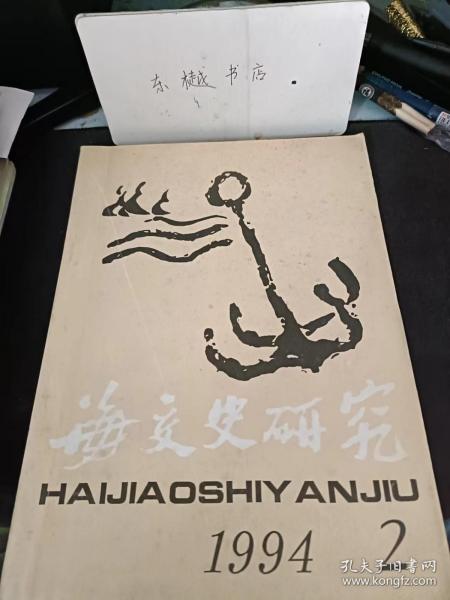 东樾书店
海交史研究
HAIJIAOSHIYANJIU
1994 2
孔夫子旧书网
www.kongfz.com